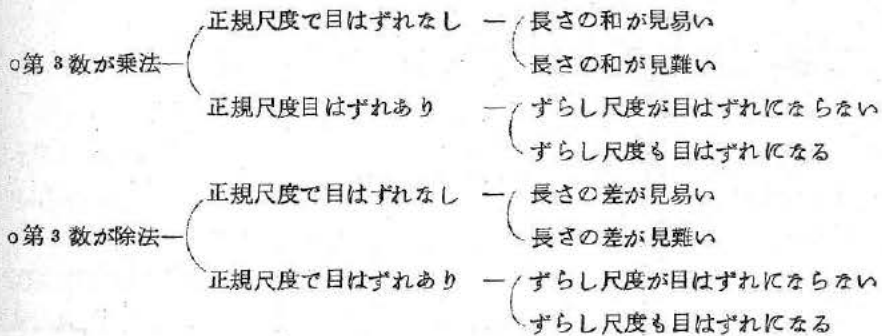 正規尺度で目はずれなし ― 長さの和が見易い
○第3数が乗法― 長さの和が見難い
正規尺度目はずれあり ― ずらし尺度が目はずれにならない
ずらし尺度も目はずれになる
正規尺度で目はずれなし ― 長さの差が見易い
○第3数が除法― 長さの差が見難い
正規尺度で目はずれあり ― ずらし尺度が目はずれにならない
ずらし尺度も目はずれになる